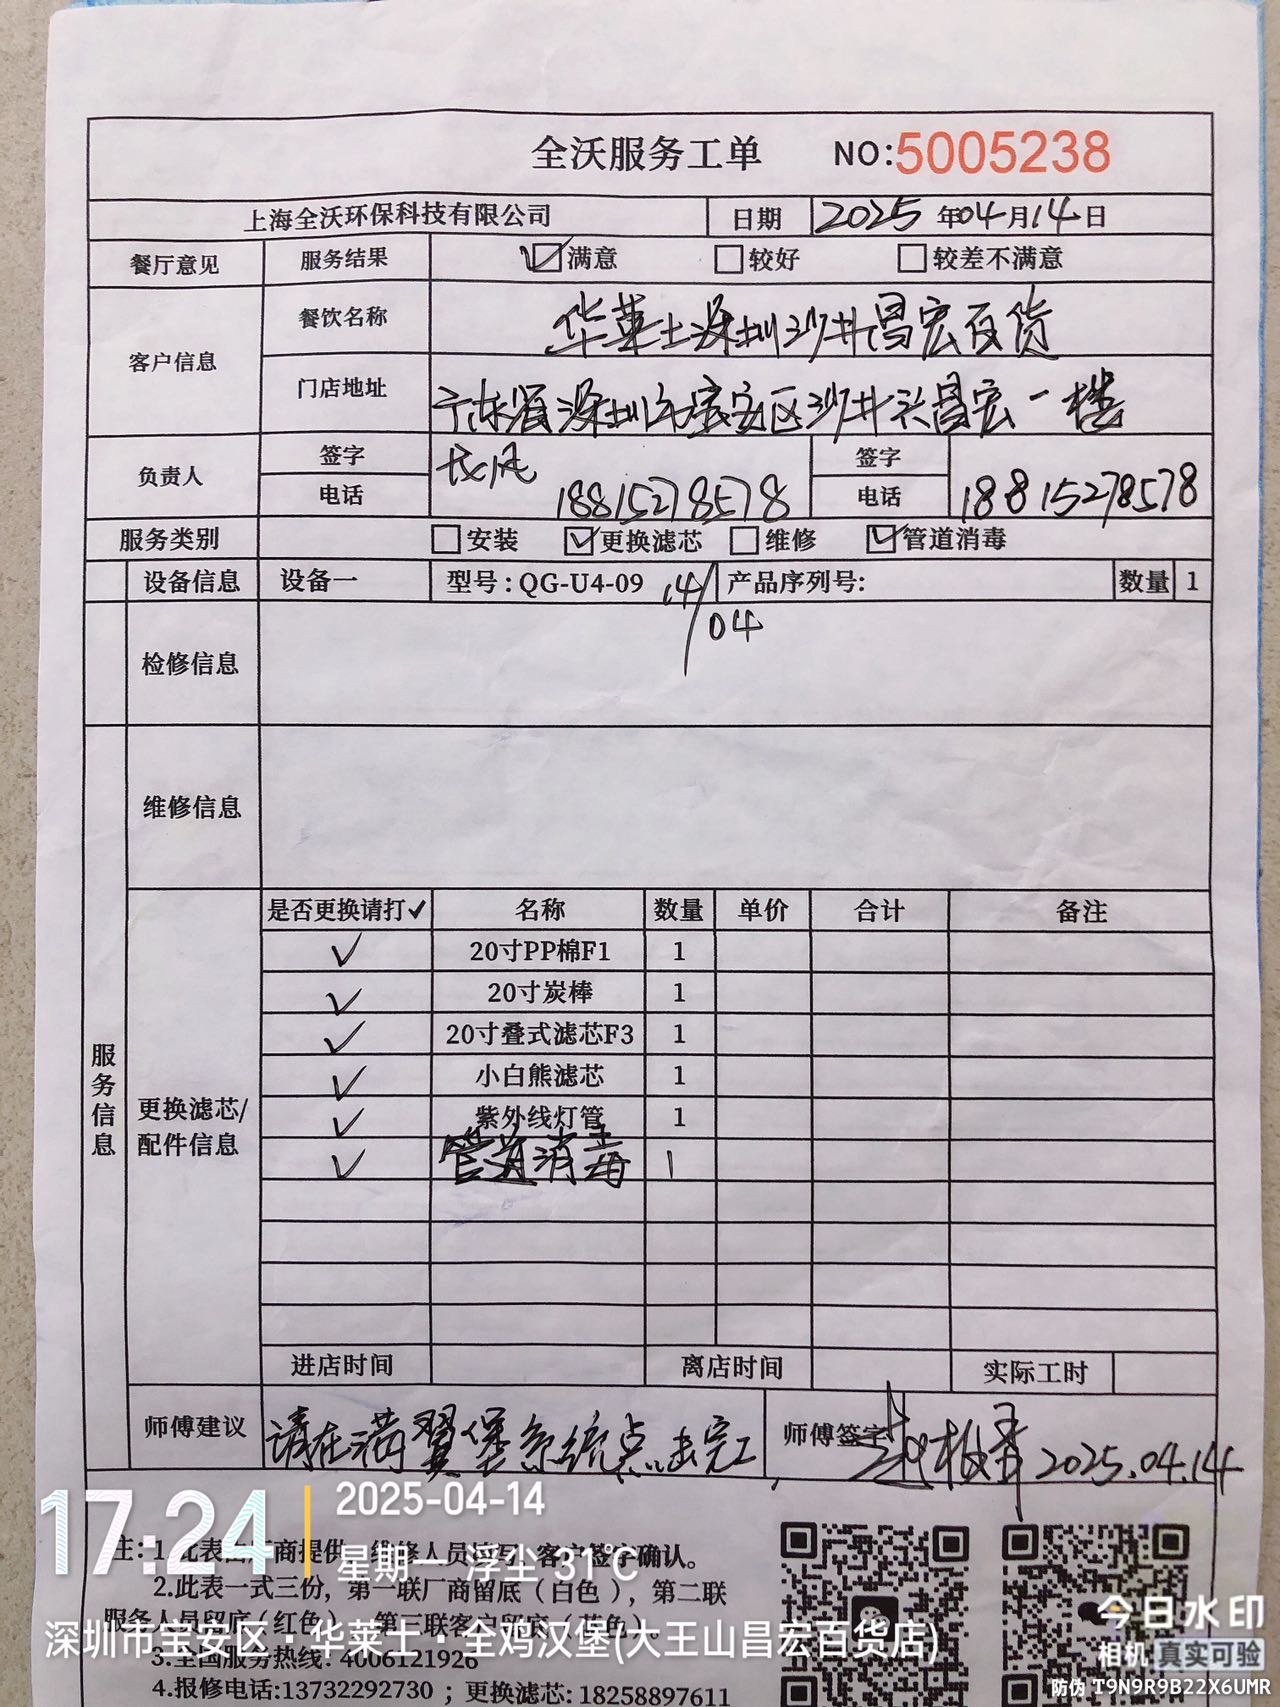 全沃服务工单 NO:5005238
上海全沃环保科技有限公司 日期 2025 年 04 月 14 日
餐厅意见 服务结果 满意 较好 较差不满意
客户信息 餐饮名称 华莱士深圳沙井昌宏百货
门店地址 广东省深圳市宝安区沙井头昌宏一楼
负责人 签字 签字
电话 18815278578 电话 18815278578
服务类别 安装 更换滤芯 维修 管道消毒
设备信息 设备一 型号:QG-U4-09 14/04 产品序列号: 数量 1
检修信息
维修信息
服务信息
更换滤芯/
配件信息
是否更换请打✓ 名称 数量 单价 合计 备注
✓ 20寸PP棉F1 1
✓ 20寸炭棒 1
✓ 20寸叠式滤芯F3 1
✓ 小白熊滤芯 1
✓ 紫外线灯管 1
✓ 管道消毒 1
进店时间 离店时间 实际工时
师傅建议 请在满翼堡系统点击完工 师傅签字 2025.04.14
注:1.此表由厂商提供,维修人员填写,客户签字确认。
2.此表一式三份,第一联厂商留底(白色),第二联
服务人员留底(红色) 第三联客户留底(蓝色)。
3.全国服务热线: 4006121926
4.报修电话:13732292730 ; 更换滤芯: 18258897611
17:24 2025-04-14
星期一 浮尘 31℃
深圳市宝安区·华莱士·全鸡汉堡(大王山昌宏百货店)
今日水印
相机 真实可验
防伪 T9N9R9B22X6UMR